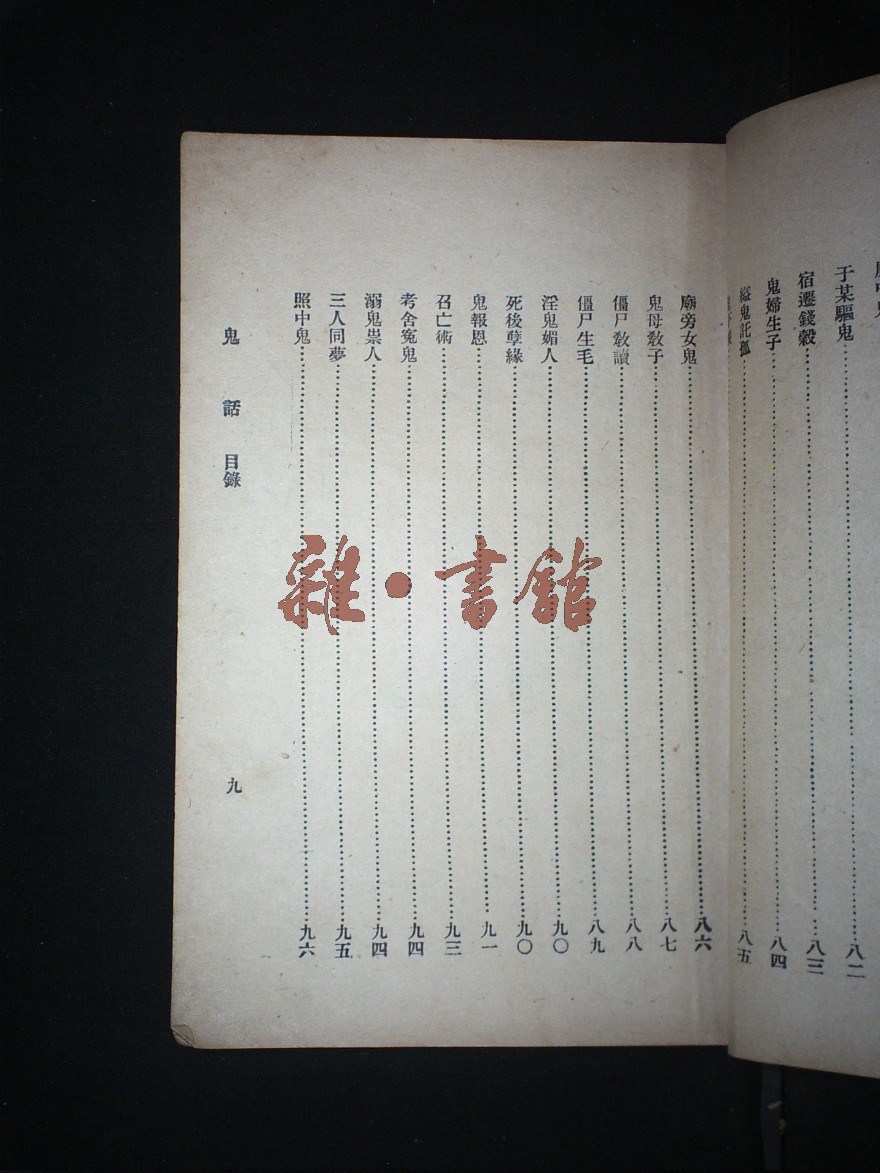 于某驅鬼……八二
宿遷錢榖……八三
鬼婦生子……八四
縊鬼託孤……八五
廟旁女鬼……八六
鬼母敎子……八七
僵尸敎讀……八八
僵尸生毛……八九
淫鬼媚人……九〇
死後孽緣……九〇
鬼報恩……九一
召亡術……九三
考舍冤鬼……九四
溺鬼祟人……九四
三人同夢……九五
照中鬼……九六
鬼話 目錄
九
雜·書館